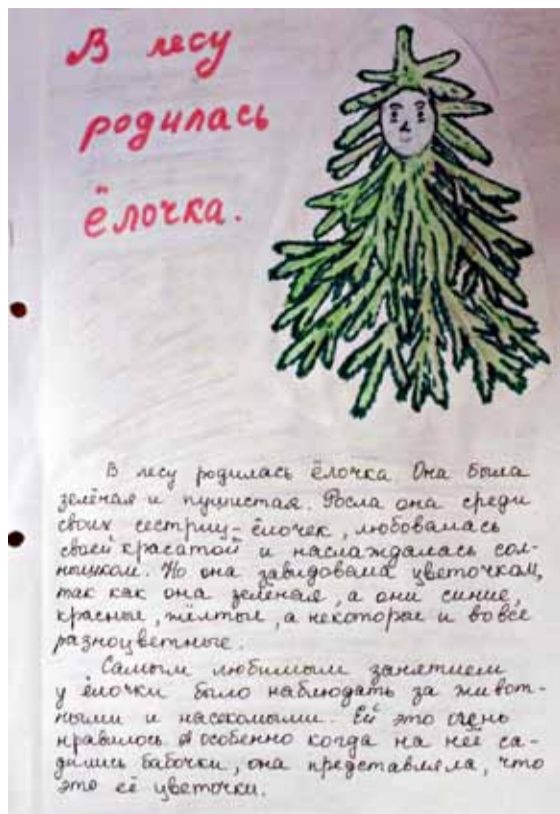 В лесу
родилась
ёлочка.
В лесу родилась ёлочка. Она была
зелёная и пушистая. Росла она среди
своих сестриц-ёлочек, любовалась
своей красатой и наслаждалась сол-
нышком. Но она завидовала цветочкам,
так как она зелёная, а они синие,
красные, жёлтые, а некоторые и вовсе
разноцветные.
Самым любимым занятием
у ёлочки было наблюдать за живот-
ными и насекомыми. Ей это очень
нравилось. А особенно когда на неё са-
дились бабочки, она представляла, что
это её цветочки.